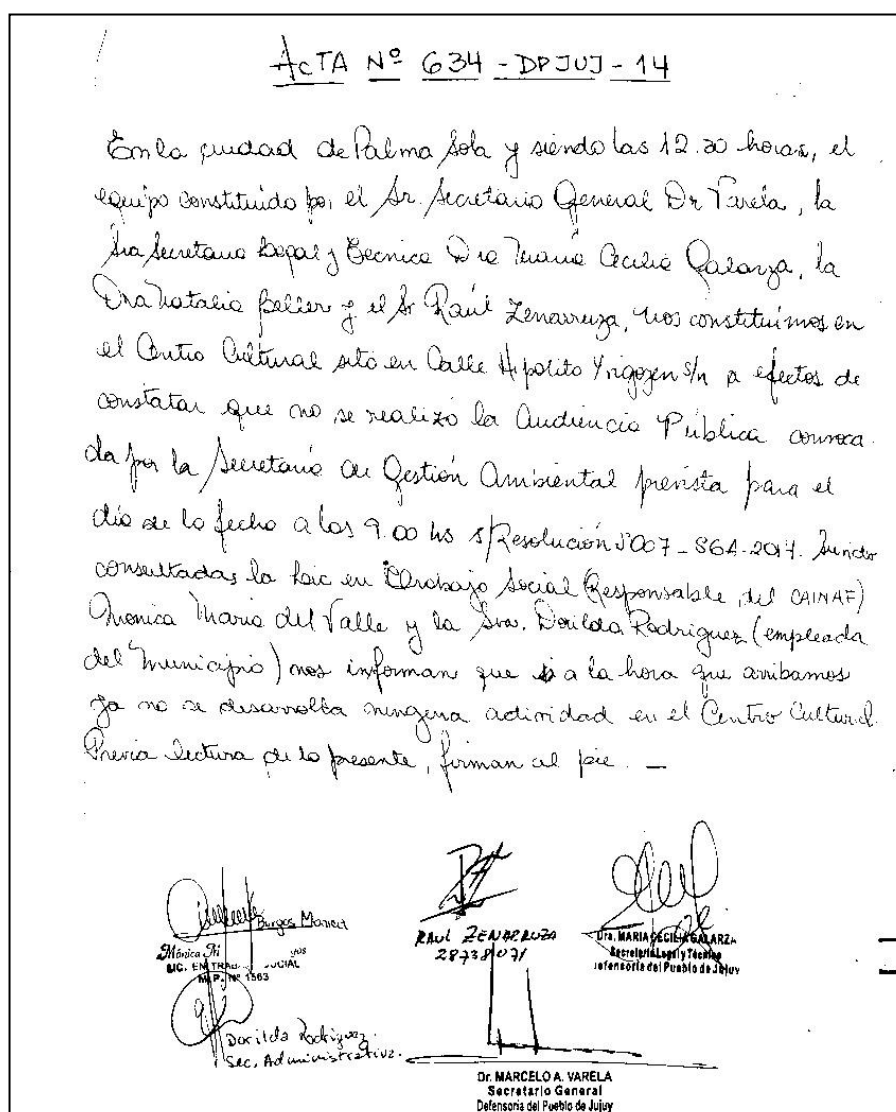 ACTA Nº 634 - DPJUJ - 14
En la ciudad de Palma Sola y siendo las 12.30 horas, el
equipo constituido por el Sr. Secretario General Dr Varela, la
Sra Secretaria Legal y Tecnica Dra Maria Cecilia Galarza, la
Dra Natalia y el Sr Raúl Zenarruza, nos constituimos en
el Centro Cultural sito en Calle Hipolito Yrigoyen s/n a efectos de
constatar que no se realizó la Audiencia Pública convoca
da por la Secretaría de Gestión Ambiental prevista para el
día de la fecha a las 9.00 hs s/Resolución 007-SGA-2014. Siendo
consultadas la Lic en Trabajo Social (Responsable del CAINAF)
Monica Maria del Valle y la Sra. Dorilda Rodriguez (empleada
del Municipio) nos informan que a la hora que arribamos
ya no se desarrolla ninguna actividad en el Centro Cultural.
Previa lectura de la presente, firman al pie. —
Burgos Monica
Mónica
LIC. EN TRAB SOCIAL
M.P. Nº 1563
RAUL ZENARRUZA
28738071
Dra. MARIA CECILIA GALARZA
Secretaria Legal y Técnica
Defensoría del Pueblo de Jujuy
Dorilda Rodriguez
Sec. Administrativa.
Dr. MARCELO A. VARELA
Secretario General
Defensoría del Pueblo de Jujuy